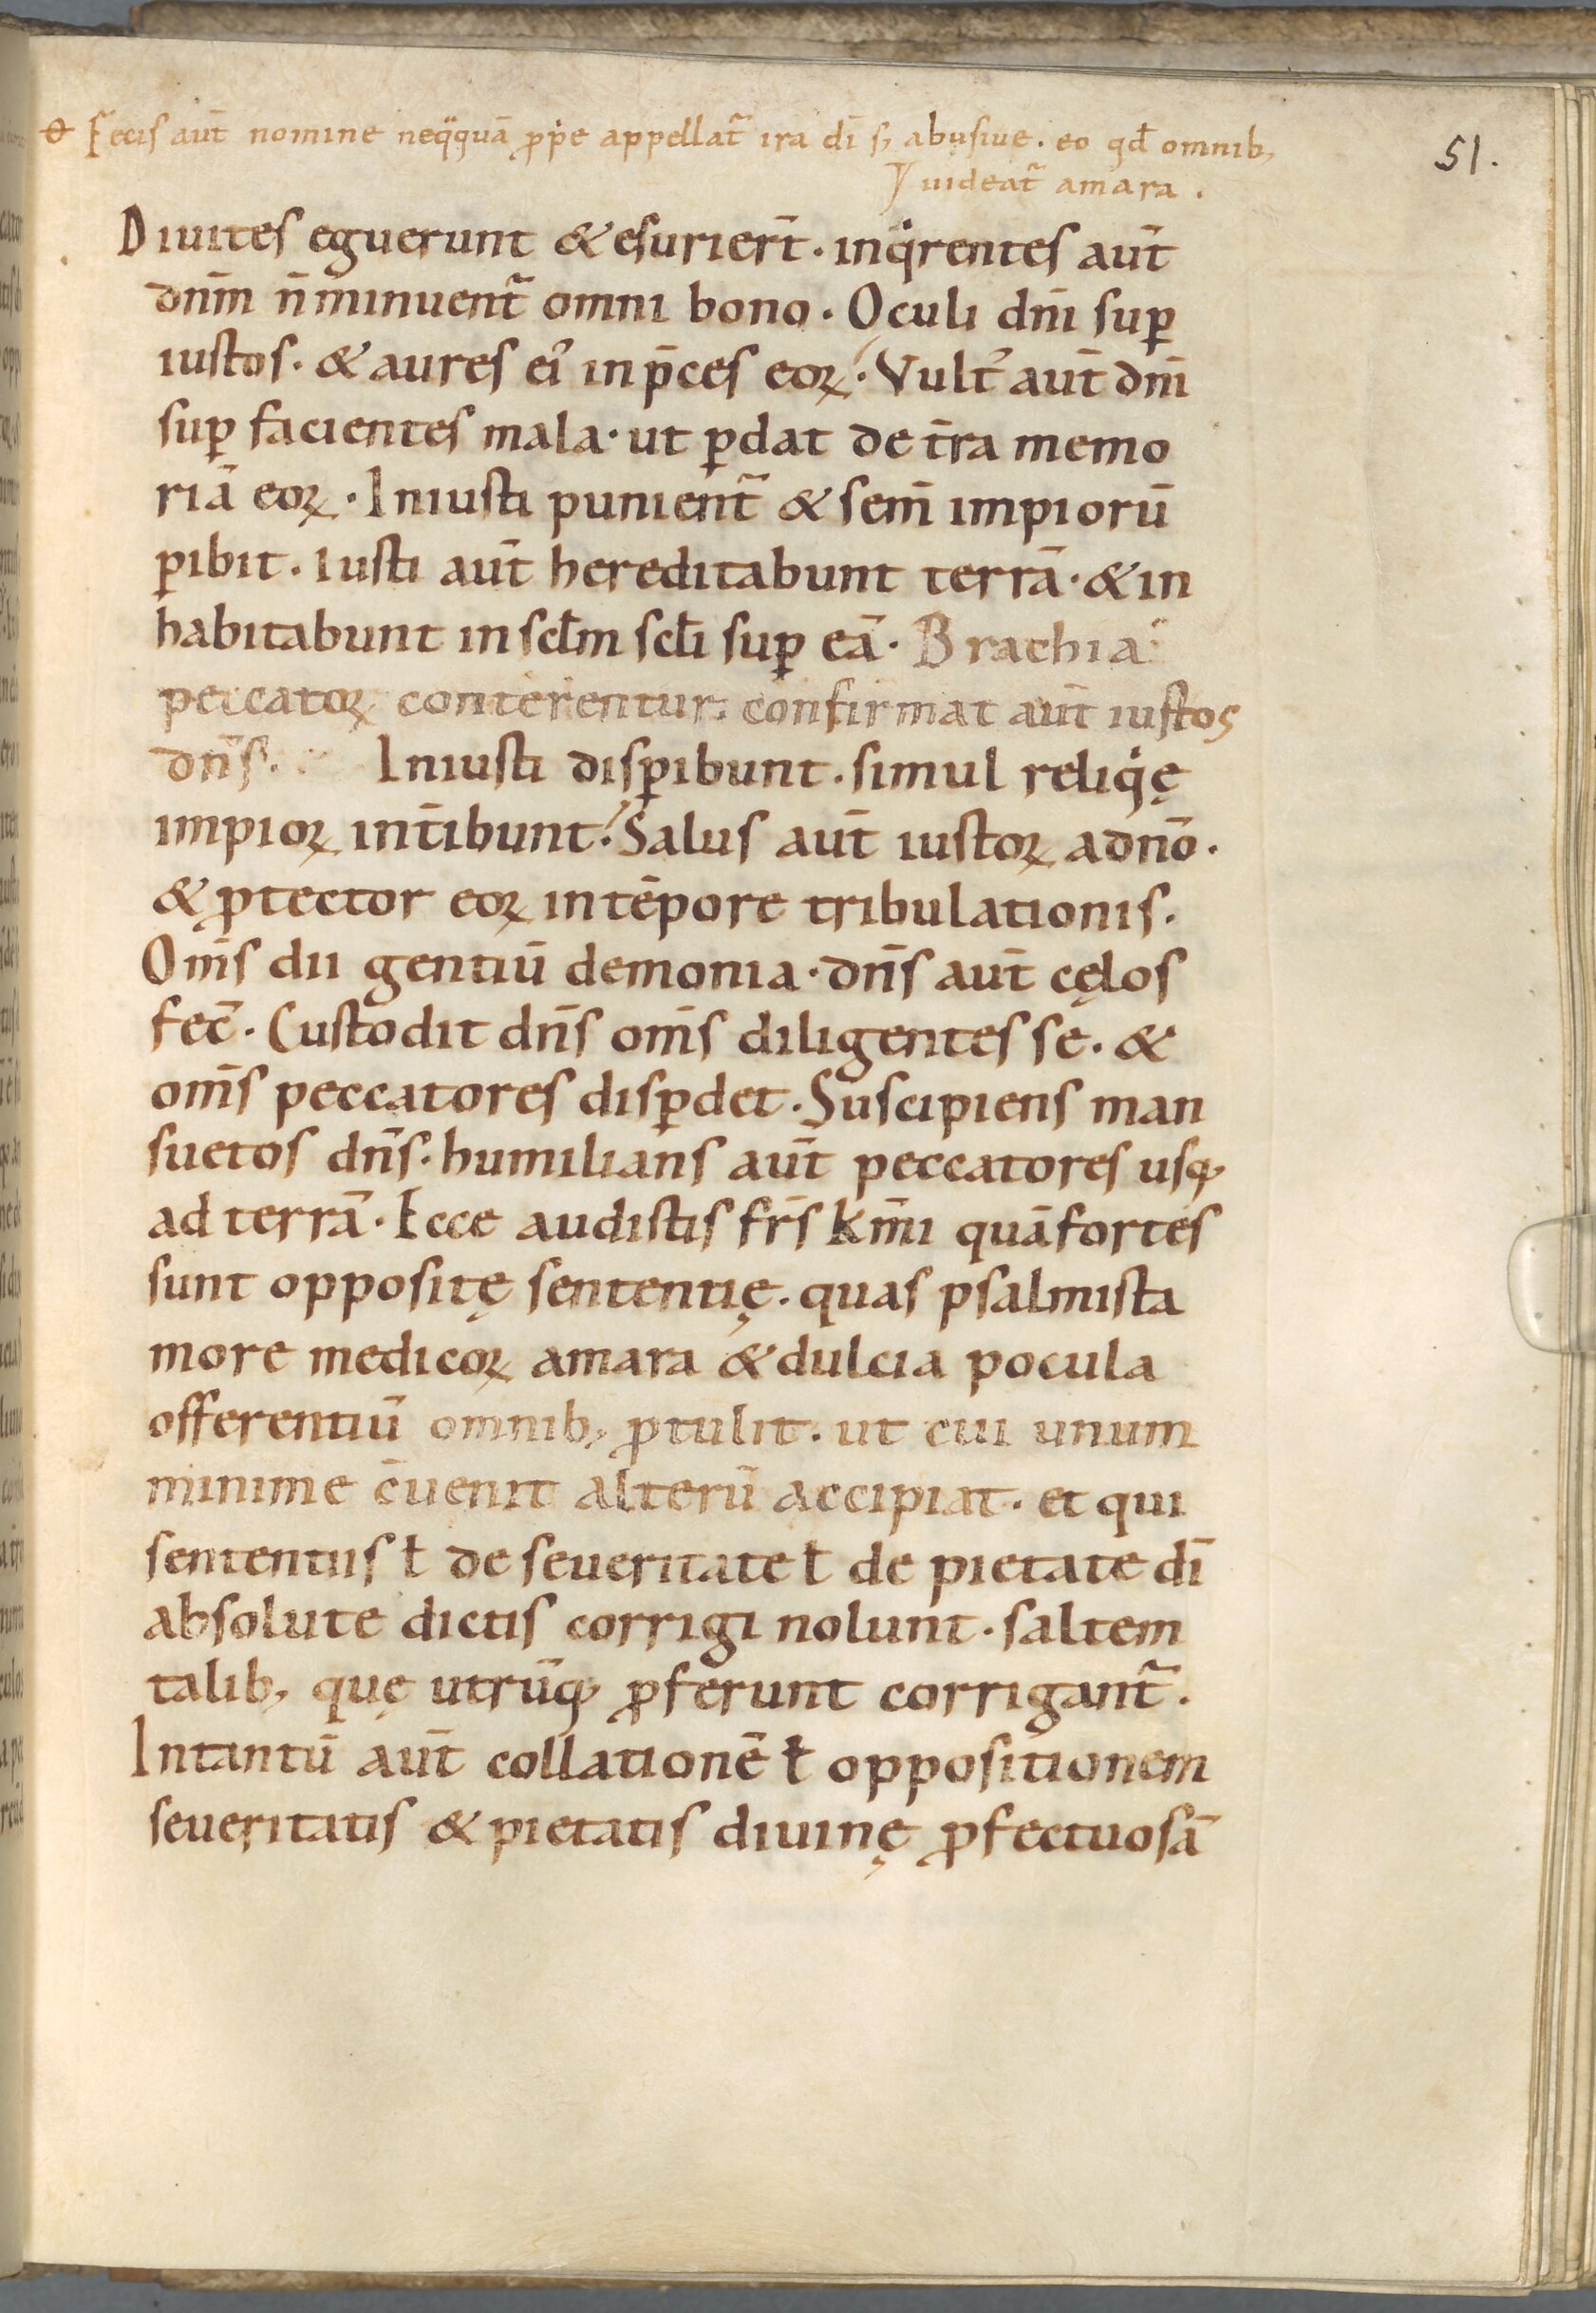 Fecis aut̄ nomine neq̈quā ꝓpͥe appellat᷑ ira dī sꝫ abusiue. eo qđ omnibꝫ
uideat᷑ amara.
51.
Diuites eguerunt & esurier̄t. inqͥrentes aut̄
dnm̄ n̄ minuent᷑ omni bono. Oculi dnī suꝑ
iustos. & aures ei᾽ in p̄ces eoꝝ. Vult᾽ aut̄ dnī
suꝑ facientes mala. ut ꝑdat de t̄ra memo
riā eoꝝ. Iniusti punient᷑ & sem̄ impiorū
ꝑibit. Iusti aut̄ hereditabunt terrā. & in
habitabunt in scłm scłi suꝑ eā. Brachia
peccatoꝝ conterentur. confirmat aut̄ iustos
dn̄s. Iniusti disꝑibunt. simul reliqͥę
impioꝝ int̄ibunt. Salus aut̄ iustoꝝ a dnō.
& ꝓtector eoꝝ in tēpore tribulationis.
Om̄s dii gentiū demonia. dn̄s aut̄ cęlos
fec̄. Custodit dn̄s om̄s diligentes se. &
om̄s peccatores disꝑdet. Suscipiens man
suetos dn̄s. humilians aut̄ peccatores usqꝫ
ad terrā. Ecce audistis fr̄s km̄i quā fortes
sunt oppositę sententię. quas psalmista
more medicoꝝ amara & dulcia pocula
offerentiū omnibꝫ ꝓtulit. ut cui unum
minime c̄uenit alterū accipiat. et qui
sententiis ł de seueritate ł de pietate dī
absolute dictis corrigi nolunt. saltem
talibꝫ quę utrūqꝫ ꝓferunt corrigant᷑.
Intantū aut̄ collationē ł oppositionem
seueritatis & pietatis diuinę ꝓfectuosā